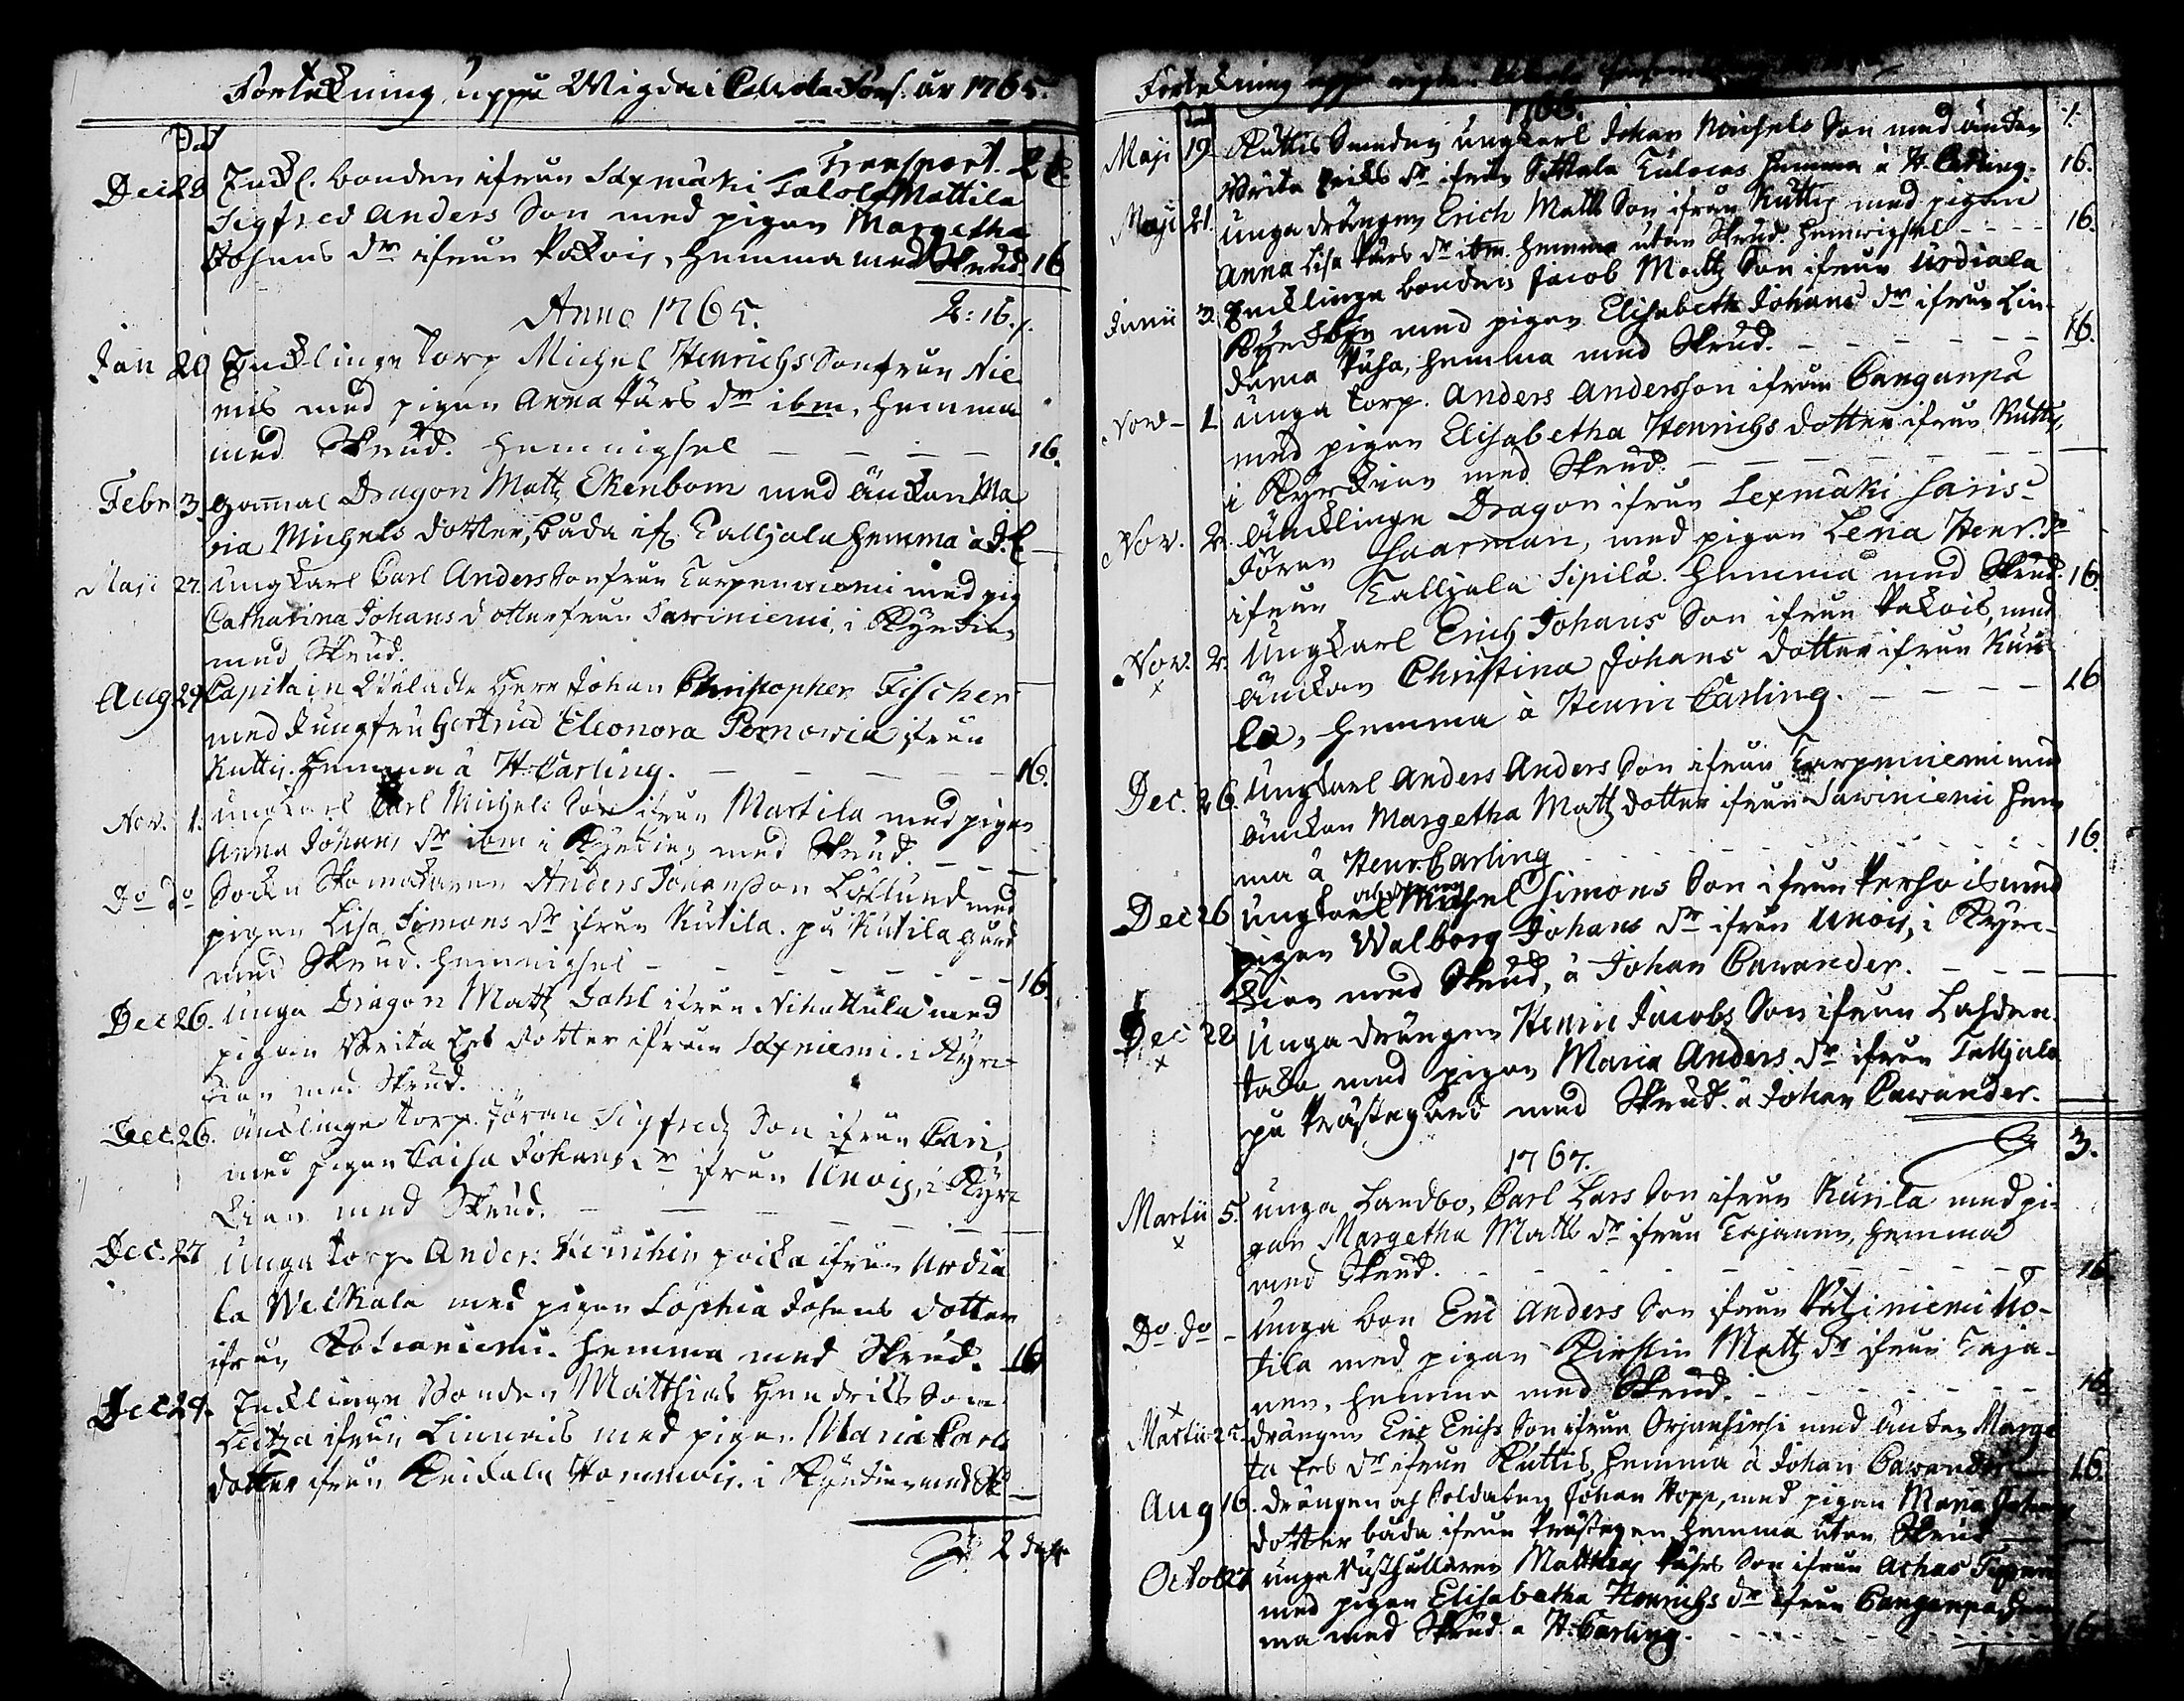 Förtekning uppå Wigda i Cahola Förs. år 1765.
Dat
Transport. 2
Dec 28 Enckl. bonden ifrån Saxmäki Talola Mattila
Sigfred Anders Son med pigan Margetha
Johans dr ifrån Pakois, hemma med Skrud 16
2:16.
Anno 1765.
Jan 20 Encklinge torp Michel Henrichs Son från Nie
mis med pigan Anna Pärs dr ibm, hemma
med Skrud. hemwigsel — — — — 16.
Febr 3. gammal Dragon Mattz Ekenbom med änckan Ma
ria Michels dotter, båda if. Talljala hemma à J. C. —
Maji 27. ungkarl Carl Anders Son från Tarpenniemi med pig
Catharina Johans dotter från Sawiniemi, i Kyrckian
med Skrud.
Aug 29 Capitain Wälädle Herr Johan Christopher Fischer
med Jungfru Gertrud Eleonora Pornovia ifrån
Kuttis. hemma à H. Carling. — — — — 16.
Nov. 1. ungkarl Carl Michels Son ifrån Martila med pigan
Anna Johans dr ibm i Kyrckian med Skrud. — —
Do do Sockn Skomakaren Anders Johansson Löflund med
pigan Lisa Simons dr ifrån Kutila. på Kutila gård
med Skrud. hemwigsel — — — — — 16.
Dec 26. unga Dragon Mattz Dahl ifrån Nihattula med
pigan Brita Ers dotter ifrån Saxniemi. i Kyrc-
kian med Skrud.
Dec. 26. äncklinge torp. Jöran Sigfredz Son ifrån Cari,
med pigan Caisa Johans dr ifrån Unois, i Kyrc
kian med Skrud. — — — — —
Dec. 27 Unga torp. Anders Henrichs poika ifrån Urdia
la Welkala med pigan Sophia Johans dotter
ifrån Kotianiemi. hemma med Skrud. 16
Dec 29. Encklinge Bonden Matthias Hendrichs Son
ifrån Linnais med pigan Maria Carls
dotter ifrån Keidala Hommois. i Kyrckian med Sk —
2 dahr
Förtekning uppå wigda i
1766.
Dat
Maji 19 Kuttis Smeden ungkarl Johan Michels Son med änckan
Brita Eriks dr ifrån Sittala Tulocas hemma à H. Carling. 16.
Maji 21. unga drängen Erich Matts Son ifrån Kuttis med pigan
Anna Lisa Pärs dr ibm. hemma utan Skrud. hemwigsel — — — 16.
Junii 3. Encklinge bonden Jacob Mattz Son ifrån Urdiala
med pigan Elisabeth Johans dr ifrån Lin-
dama Puha, hemma med Skrud. — — — — — 16.
Nov — 1 unga torp. Anders Andersson ifrån Canganpä
med pigan Elisabetha Henrichs dotter ifrån Kuttis,
i Kyrckian med Skrud. — — — — —
Nov. 2. äncklinge Dragon ifrån Sexmäki Haris
Jöran Haarman, med pigan Lena Henr. dr
ifrån Talljala Sipilä. hemma med Skrud. 16.
Nov. 2. Ungkarl Erich Johans Son ifrån Pakois, med
änckan Christina Johans dotter ifrån Kuri
la, hemma à Henric Carling. — — — — 16
Dec. 26. Ungkarl Anders Anders Son ifrån Tarpenniemi med
änckan Margetha Matz dotter ifrån Sawiniemi hem
ma à Henr. Carling — — — — — 16.
Dec 26 Ungkarl Michel Simons Son ifrån Perhois med
pigan Walborg Johans dr ifrån Unois, i Kyrc-
kian med Skrud, à Johan Cawander. — — —
Dec 28 Unga drängen Henric Jacobs Son ifrån Lahden
taka med pigan Maria Anders dr ifrån Talljala
på Prästegård med Skrud. à Johan Cawander.
3.
1767.
Martii 5. unga Landbo, Carl Lars Son ifrån Kurila med pi-
gan Margetha Matts dr ifrån Terjanen, hemma
med Skrud. — — — — — 16
Do do — Unga bon Eric Anders Son ifrån Patziniemi Uo-
tila med pigan Kirstin Mattz dr ifrån Taja-
nen, hemma med Skrud. — — — — — 16.
Martii 22. drängen Eric Erichs Son ifrån Orjanhirsi med änckan Marge
ta Ers dr ifrån Kuttis, hemma à Johan Cawander — 16.
Aug 16. drängen och Soldaten Johan Hopp, med pigan Maria Johans
dotter båda ifrån Prästegen, hemma utan Skrud —
Octob 27 unga rusthållaren Matthias Påhls Son ifrån Achas
med pigan Elisabetha Henrichs dr ifrån Canganpä hem
ma med Skrud. à H. Carling. — — — — 16.